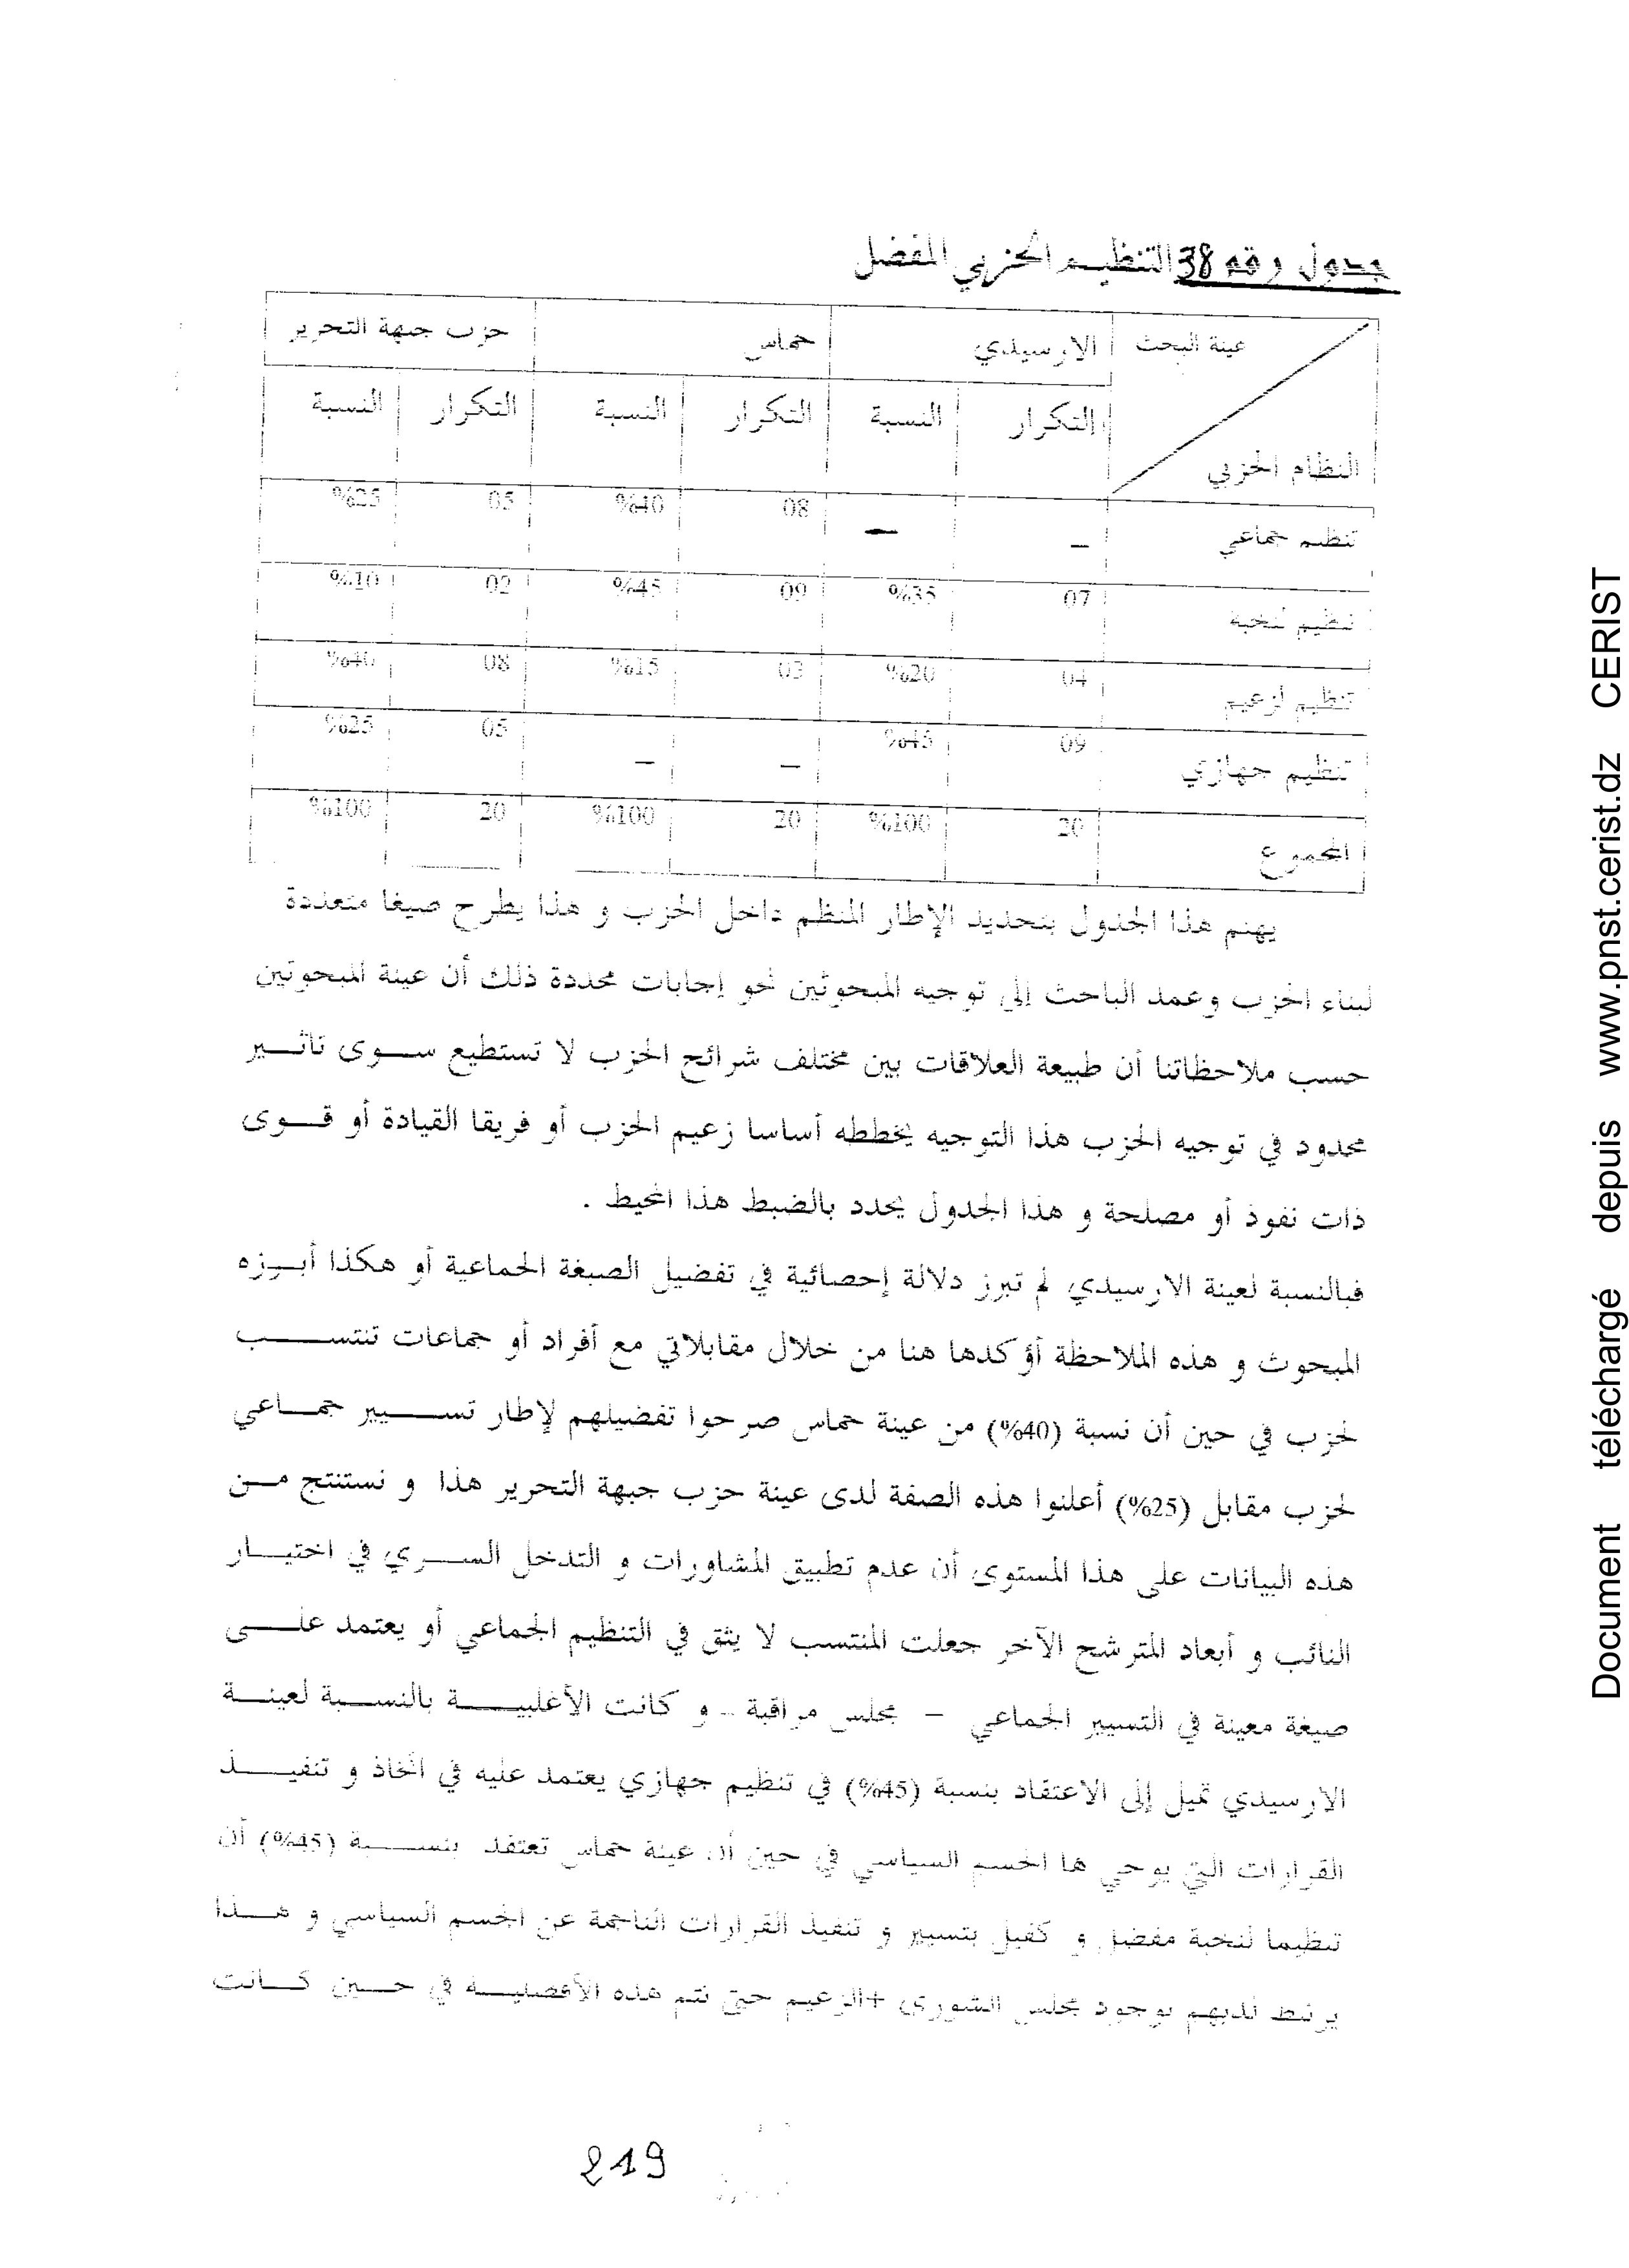 جدول رقم 38 التنظيم الحزبي المفضل
عينة البحث الارسيدي حماس حزب جبهة التحرير
النظام الحزبي التكرار النسبة التكرار النسبة التكرار النسبة
تنظيم جماعي – – 08 %40 05 %25
تنظيم لنخبة 07 %35 09 %45 02 %10
تنظيم لزعيم 04 %20 03 %15 08 %40
تنظيم جهازي 09 %45 – – 05 %25
المجموع 20 %100 20 %100 20 %100
يهتم هذا الجدول بتحديد الإطار المنظم داخل الحزب و هذا يطرح صيغا متعددة
لبناء الحزب وعمد الباحث إلى توجيه المبحوثين نحو إجابات محددة ذلك أن عينة المبحوثين
حسب ملاحظاتنا أن طبيعة العلاقات بين مختلف شرائح الحزب لا تستطيع سوى تاثير
محدود في توجيه الحزب هذا التوجيه يخططه أساسا زعيم الحزب أو فريقا القيادة أو قوى
ذات نفوذ أو مصلحة و هذا الجدول يحدد بالضبط هذا المحيط .
فبالنسبة لعينة الارسيدي لم تبرز دلالة إحصائية في تفضيل الصبغة الجماعية أو هكذا أبرزه
المبحوث و هذه الملاحظة أؤكدها هنا من خلال مقابلاتي مع أفراد أو جماعات تنتسب
لحزب في حين أن نسبة (40%) من عينة حماس صرحوا تفضيلهم لإطار تسيير جماعي
لحزب مقابل (25%) أعلنوا هذه الصفة لدى عينة حزب جبهة التحرير هذا و نستنتج من
هذه البيانات على هذا المستوى أن عدم تطبيق المشاورات و التدخل السري في اختيار
النائب و أبعاد المترشح الآخر جعلت المنتسب لا يثق في التنظيم الجماعي أو يعتمد على
صيغة معينة في التسيير الجماعي – مجلس مراقبة – و كانت الأغلبية بالنسبة لعينة
الارسيدي تميل إلى الاعتقاد بنسبة (45%) في تنظيم جهازي يعتمد عليه في اتخاذ و تنفيذ
القرارات التي يوحي ها الجسم السياسي في حين أن عينة حماس تعتقد بنسبة (45%) أن
تنظيما لنخبة مفضل و كفيل بتسيير و تنفيذ القرارات الناجمة عن الجسم السياسي و هذا
يرتبط لديهم بوجود مجلس الشورى +الزعيم حتى تتم هذه الأفضلية في حين كانت
219
Document téléchargé depuis www.pnst.cerist.dz CERIST